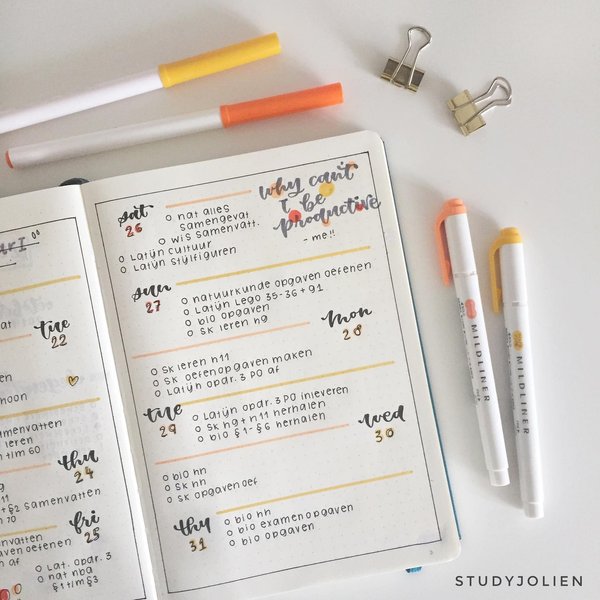 tue
22
thu
24
fri
25
samenvatten
o Lat. opdr. 3
o nat nba
§1 tim §3
sat
26
o nat alles
samengevat
o wis samenvatt.
o Latijn cultuur
o Latijn stijlfiguren
why can't
I be
productive
- me!!
sun
27
o natuurkunde opgaven oefenen
o Latijn Lego 35-36 + 91
o bio opgaven
o sk leren h9
mon
28
o sk leren h11
o sk oefenopgaven maken
o Latijn opdr. 3 PO af
tue
29
o Latijn opdr. 3 PO inleveren
o sk h9 + h11 herhalen
o bio §1 - §6 herhalen
wed
30
o bio hn
o sk hn
o sk opgaven oef
thu
31
o bio hn
o bio examenopgaven
o bio opgaven
MILDLINER
MILDLINER
STUDYJOLIEN